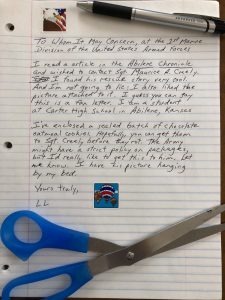 To Whom It May Concern, at the 2nd Marine
Division of the United States Armed Forces,
I read a article in the Abilene Chronicle
and wished to contact Sgt. Maurice A. Creely.
I found his rescue story very cool.
And I'm not going to lie: I also liked the
picture attached to it. I guess you can say
this is a fan letter. I am a student
at Carter High School in Abilene, Kansas
I've enclosed a sealed batch of chocolate
oatmeal cookies. Hopefully you can get them
to Sgt. Creely before they rot. The Army
might have a strict policy on packages,
but I'd really like to get this to him. Let
me know. I have his picture hanging
by my bed.
Yours truly,
LL